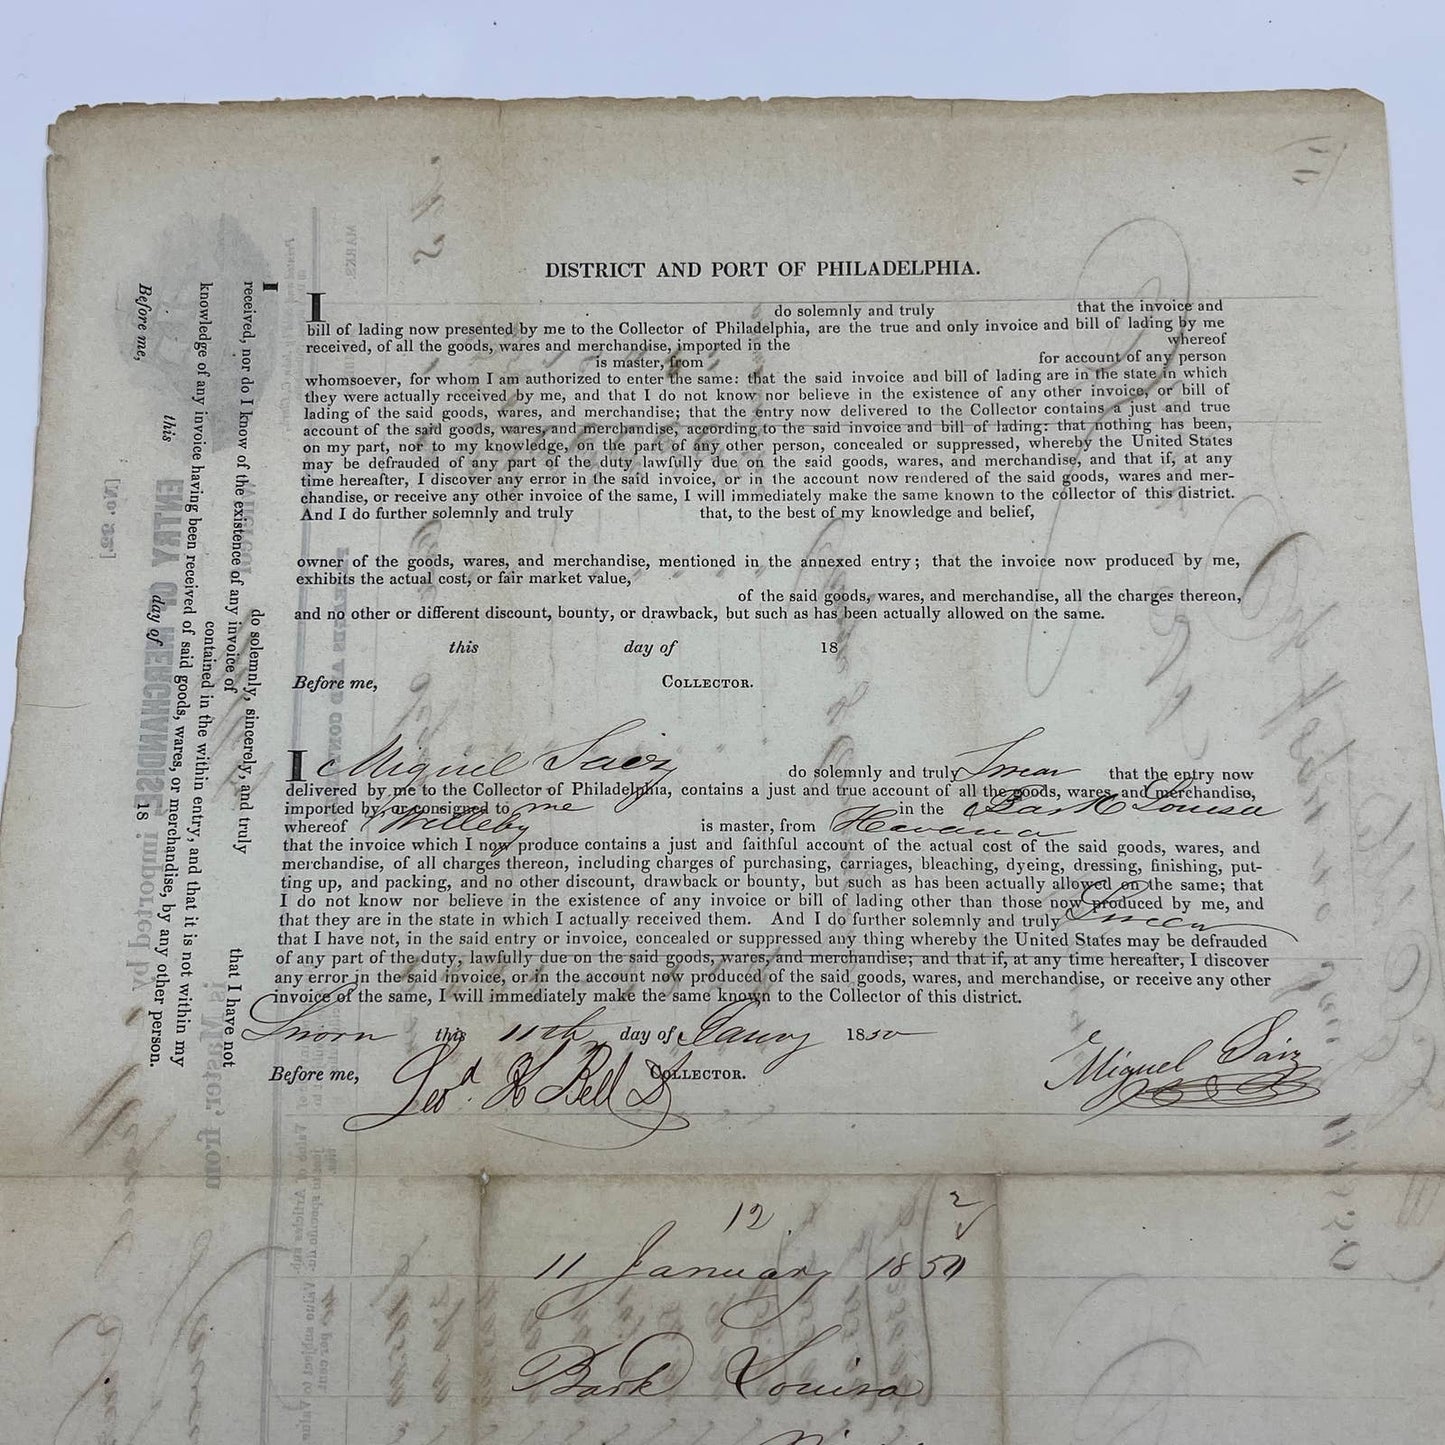 DISTRICT AND PORT OF PHILADELPHIA.
I do solemnly and truly that the invoice and
bill of lading now presented by me to the Collector of Philadelphia, are the true and only invoice and bill of lading by me
received, of all the goods, wares and merchandise, imported in the whereof
is master, from for account of any person
whomsoever, for whom I am authorized to enter the same: that the said invoice and bill of lading are in the state in which
they were actually received by me, and that I do not know nor believe in the existence of any other invoice, or bill of
lading of the said goods, wares, and merchandise; that the entry now delivered to the Collector contains a just and true
account of the said goods, wares, and merchandise, according to the said invoice and bill of lading: that nothing has been,
on my part, nor to my knowledge, on the part of any other person, concealed or suppressed, whereby the United States
may be defrauded of any part of the duty lawfully due on the said goods, wares, and merchandise, and that if, at any
time hereafter, I discover any error in the said invoice, or in the account now rendered of the said goods, wares and mer-
chandise, or receive any other invoice of the same, I will immediately make the same known to the collector of this district.
And I do further solemnly and truly that, to the best of my knowledge and belief,
owner of the goods, wares, and merchandise, mentioned in the annexed entry; that the invoice now produced by me,
exhibits the actual cost, or fair market value,
of the said goods, wares, and merchandise, all the charges thereon,
and no other or different discount, bounty, or drawback, but such as has been actually allowed on the same.
this day of 18
Before me, COLLECTOR.
I Miguel Saiz do solemnly and truly Swear that the entry now
delivered by me to the Collector of Philadelphia, contains a just and true account of all the goods, wares, and merchandise,
imported by, or consigned to me in the Bark Louisa
whereof Willeby is master, from Havana
that the invoice which I now produce contains a just and faithful account of the actual cost of the said goods, wares, and
merchandise, of all charges thereon, including charges of purchasing, carriages, bleaching, dyeing, dressing, finishing, put-
ting up, and packing, and no other discount, drawback or bounty, but such as has been actually allowed on the same; that
I do not know nor believe in the existence of any invoice or bill of lading other than those now produced by me, and
that they are in the state in which I actually received them. And I do further solemnly and truly Swear
that I have not, in the said entry or invoice, concealed or suppressed any thing whereby the United States may be defrauded
of any part of the duty, lawfully due on the said goods, wares, and merchandise; and that if, at any time hereafter, I discover
any error in the said invoice, or in the account now produced of the said goods, wares, and merchandise, or receive any other
invoice of the same, I will immediately make the same known to the Collector of this district.
Sworn this 11th day of Jany 1850
Before me, Geo. H Bell D COLLECTOR.
Miguel Saiz
I do solemnly, sincerely, and truly that I have not
received, nor do I know of the existence of any invoice of
contained in the within entry, and that it is not within my
knowledge of any invoice having been received of said goods, wares, or merchandise, by any other person.
Before me, this day of 18
12
11 January 1850
Bark Louisa